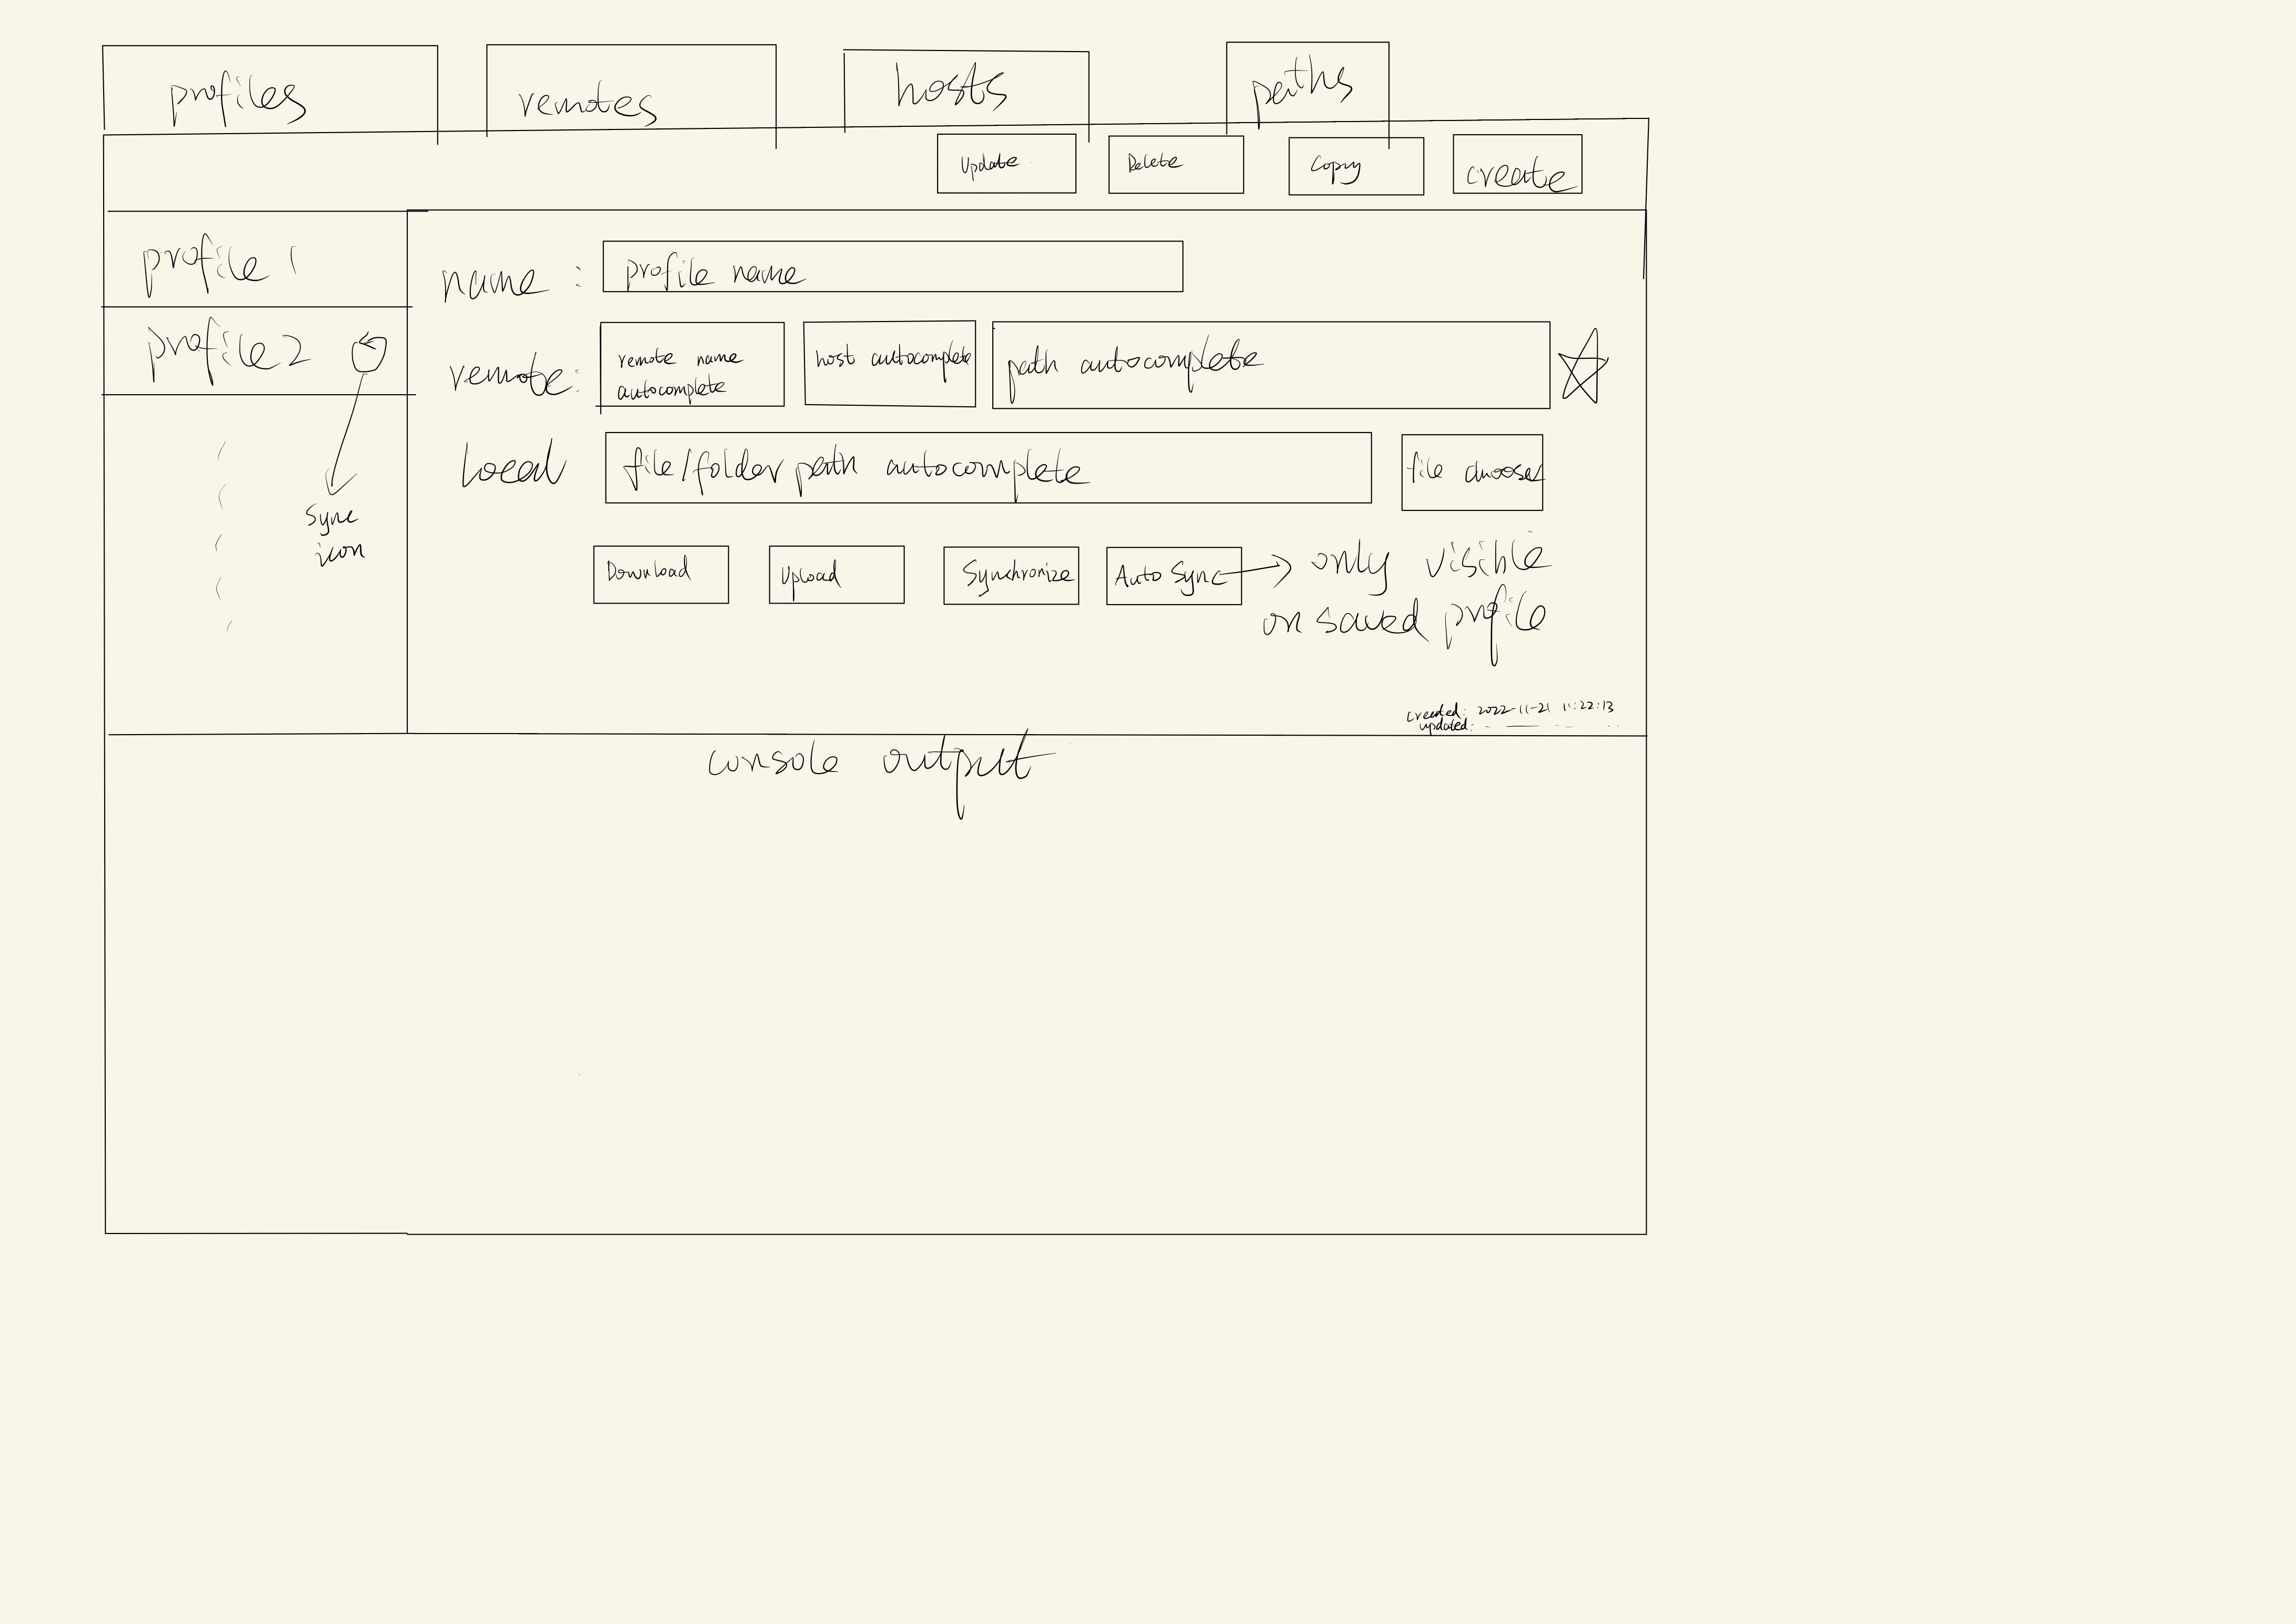 profiles
remotes
hosts
paths
Update
Delete
Copy
create
profile 1
profile 2
sync
icon
name :
profile name
remote:
remote name
autocomplete
host autocomplete
path autocomplete
Local
file/folder path autocomplete
file chooser
Download
Upload
Synchronize
Auto Sync
only visible
on saved profile
created: 2022-11-21 11:22:13
updated:
console output